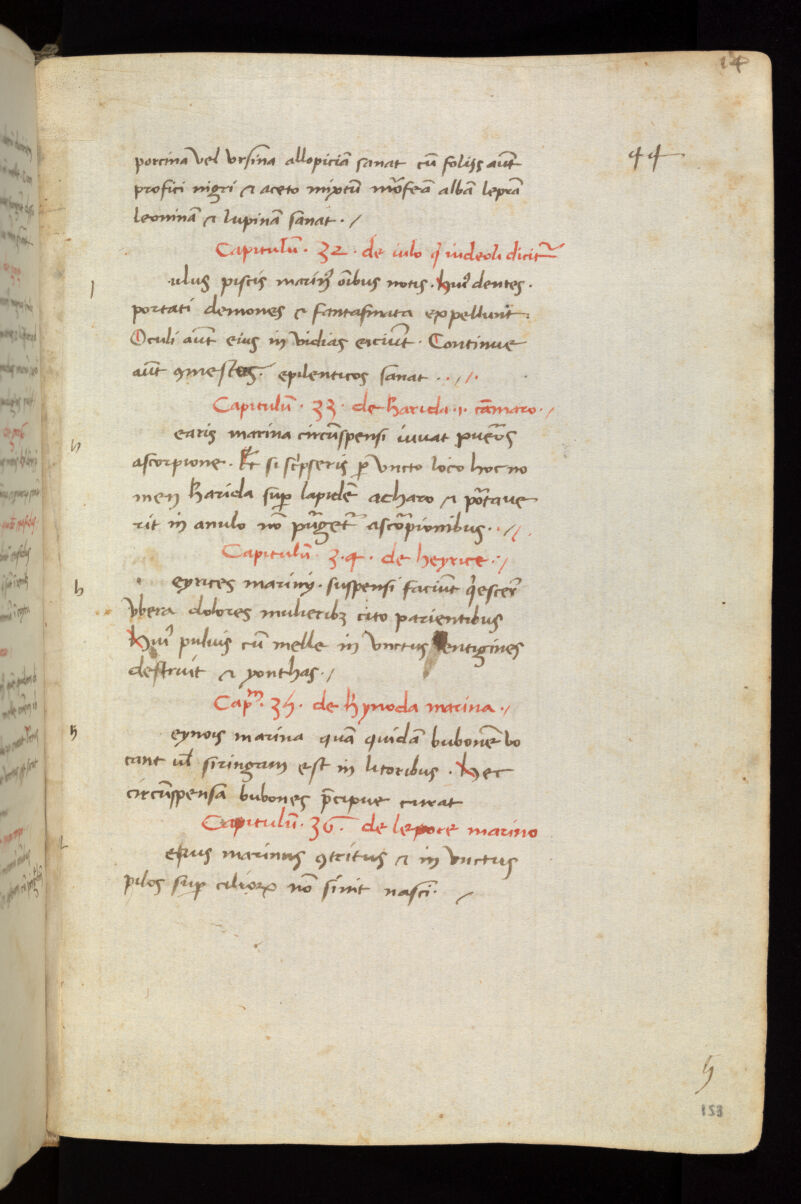 14
44
porcina vel ursina allopiciã sanat cũ folijs aũt
profici nigri & aceto mixtũ morfeã albã leprã
leoninã & lupinã sanat · /
Capitulũ · 32 · de iulo q̃ iudeoli dicit~
i ulus piscis marin9 oĩbus notis · Hui9 dentes ·
portati demones & fantasmata expellunt :
Oculi aũt eius in vidias eiciũt · Continue
aũt 9mestos · epilenticos sanat · · / / ·
Capitulũ · 33 · de karida · i · cãmaro · /
h earis marina circũspensi iuvat pueros
ascorpione · Et si sc̃pseris ꝑ vncto loco hoc no
men karida suꝑ lapidẽ acharo & portave
rit in anulo nõ purget~ ascorpionibus · · / /
Capitulũ · 34 · de heyrice · /
h eyrices marinj · suspensi faciũt q̃escer
vbera dolores mulieribȝ cito parientibus
Hui9 pulvis cũ melle in vnctus lentigines
destruit & yonthas · /
Cap.m · 35 · de kynoda marina · /
h eynois marina quã quidã bubonẽ vo
cant ul̃ siringam est in litoribus · Hec
circũspensã bubones p̃cipue curat
Capitulũ · 36 · de lepore marino
l epus marinus 9tritus & in vnctus
pilos suꝑ ciliorꝝ nõ sinit nasci · /
h
153